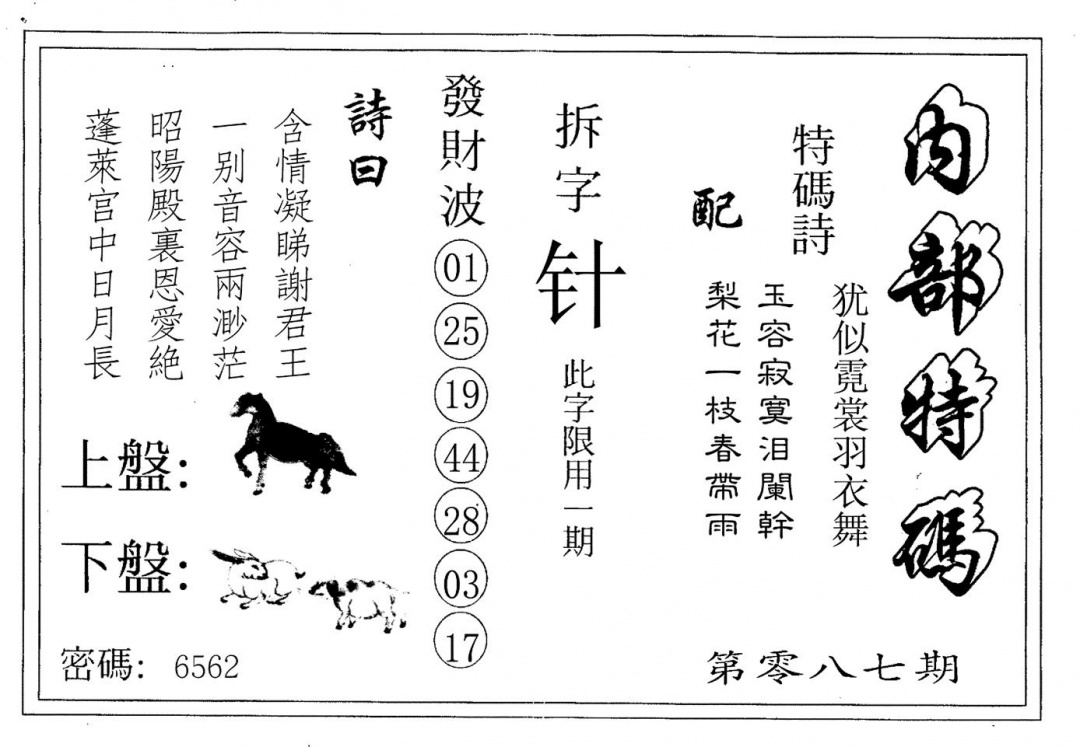 內部特碼
第零八七期
特碼詩
犹似霓裳羽衣舞
配
玉容寂寞泪闌幹
梨花一枝春帶雨
拆字
针
此字限用一期
發財波
01
25
19
44
28
03
17
詩曰
含情凝睇謝君王
一别音容兩渺茫
昭陽殿裏恩愛絶
蓬萊宮中日月長
上盤：
下盤：
密碼： 6562